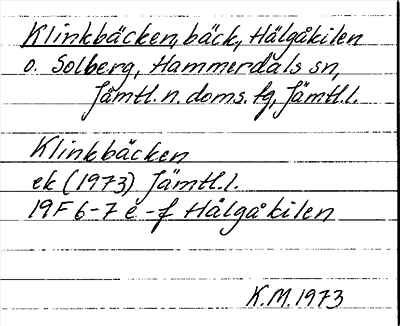 Klinkbäcken, bäck, Hälgåkilen
o. Solberg, Hammerdals sn,
Jämtl. n. doms. fg, Jämtl. l.
Klinkbäcken
ek (1973) Jämtl. l.
19F 6-7 e-f Hälgåkilen
K.M. 1973